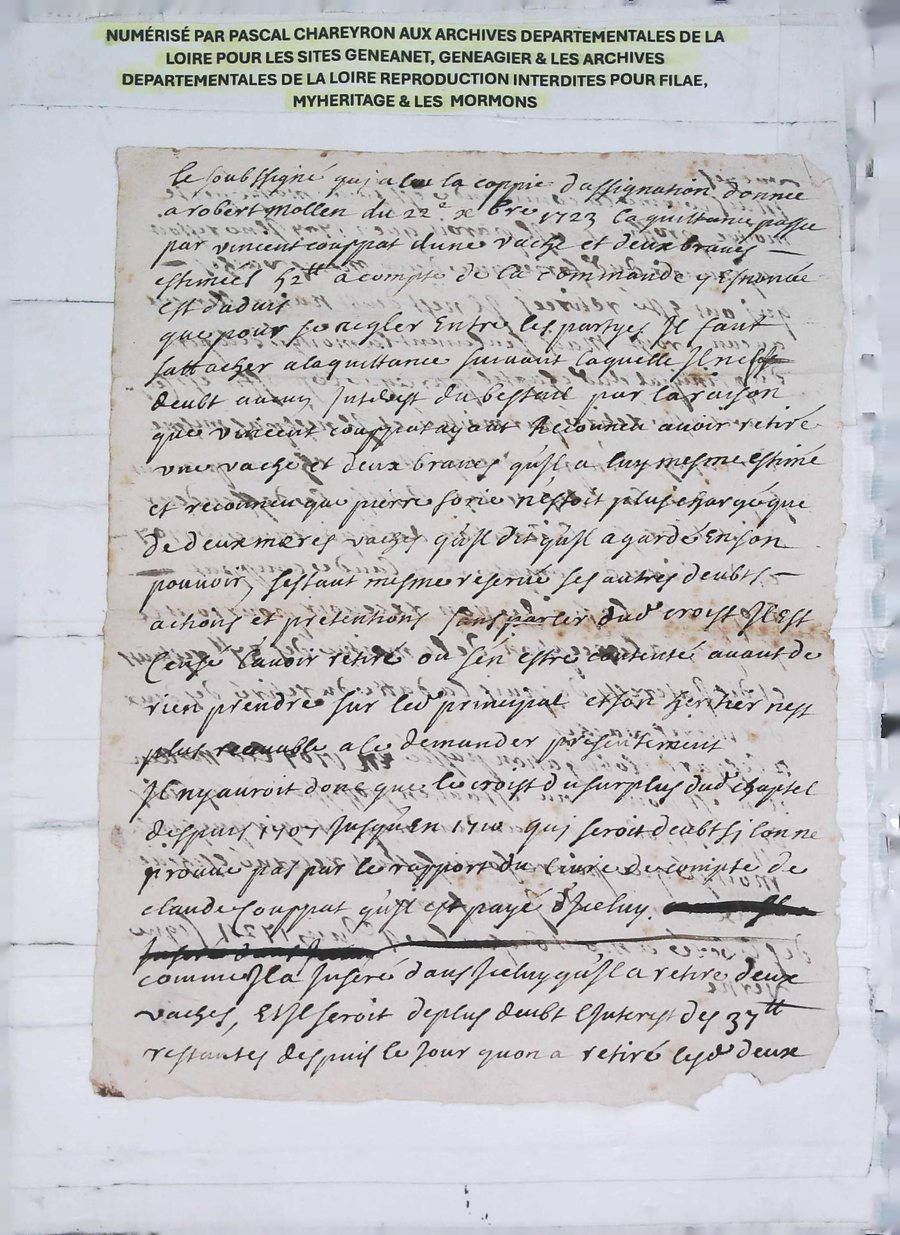 NUMÉRISÉ PAR PASCAL CHAREYRON AUX ARCHIVES DEPARTEMENTALES DE LA
LOIRE POUR LES SITES GENEANET, GENEAGIER & LES ARCHIVES
DEPARTEMENTALES DE LA LOIRE REPRODUCTION INTERDITES POUR FILAE,
MYHERITAGE & LES MORMONS
le soubssigné qui a leu la coppie d'assignation donnée
a robert mollen du 22e xbre 1723 la quittance passe
par vincent couppat d'une vache et deux braves
estimées 52tt a compte de la commande y enoncée
est d'advis
que pour se regler Entre les partyes Il faut
sattacher a la quittance suivant laquelle Il
deubt aucun Interest du bestail par la raison
que vincent couppat ayant Reconneu avoir retiré
une vache et deux braves qu'Il a luy mesme estimé
et reconneu que pierre n'estoit plus chargé que
de deux meres vaches qu'Il dit qu'Il a gardé En son
pouvoir, sestant mesme reservé ses autres deubts
actions et pretentions sans parler dud croist Il Est
Censé L'avoir retiré ou s'en estre contenté avant de
rien prendre sur led principal et son heritier nest
plus recevable a le demander presentement
Il ny auroit donc que le croist du surplus dud chaptel
despuis 1707 Jusqu'En 1710 qui seroit deubt si lon ne
prouve pas par le rapport du livre de compte de
claude Couppat qu'Il est payé d'Iceluy.
comme Il a Inseré dans Iceluy qu'Il a retire deux
vaches, Et Il seroit de plus deubt l'Interest des 37tt
restantes despuis le Jour quon a retiré lesd deux